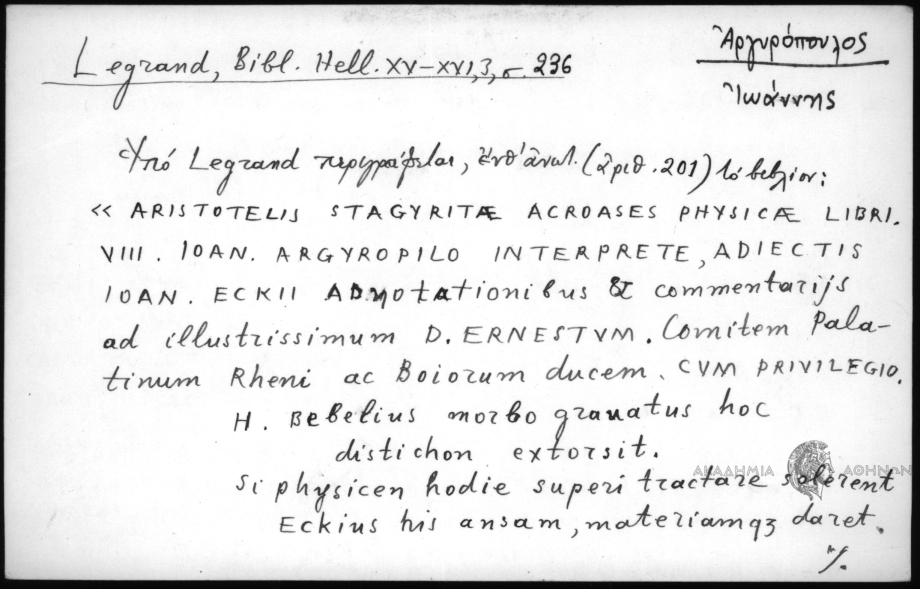 Legrand, Bibl. Hell. XV–XVI, 3, σ. 236
Ἀργυρόπουλος
Ἰωάννης
Ὑπό Legrand περιγράφεται, ἐνθ' ἀνωτ. (ἀριθ. 201) τό βιβλίον:
« ARISTOTELIS STAGYRITÆ ACROASES PHYSICÆ LIBRI.
VIII. IOAN. ARGYROPILO INTERPRETE, ADIECTIS
IOAN. ECKII ADnotationibus & commentarijs
ad illustrissimum D. ERNESTVM. Comitem Pala-
tinum Rheni ac Boiorum ducem. CVM PRIVILEGIO.
H. Bebelius morbo grauatus hoc
distichon extorsit.
Si physicen hodie superi tractare solerent
Eckius his ansam, materiamqꝫ daret.
./.
ΑΚΑΔΗΜΙΑ ΑΘΗΝΩΝ